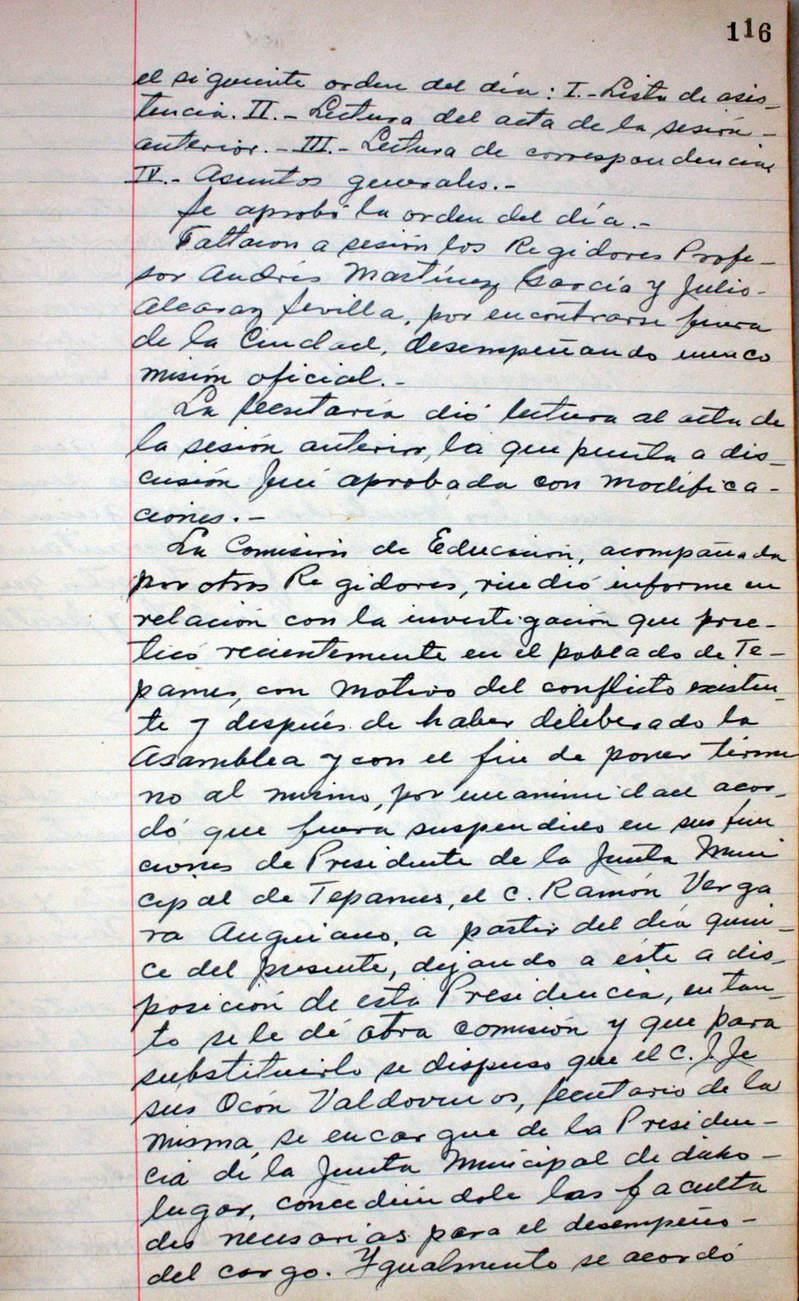 116
el siguiente orden del día: I.- Lista de asis-
tencia. II.- Lectura del acta de la sesión-
anterior.- III.- Lectura de correspondencia,
IV.- Asuntos generales.-
Se aprobó la orden del día.-
Faltaron a sesión los Regidores Profe-
sor Andrés Martínez García y Julio-
Alcaraz Sevilla, por encontrarse fuera
de la Ciudad, desempeñando una co
misión oficial.-
La Secretaría dió lectura al acta de
la sesión anterior, la que puesta a dis-
cusión fué aprobada con modifica-
ciones.-
La Comisión de Educación, acompañada
por otros Regidores, rindió informe en
relación con la investigación que prac-
ticó recientemente en el poblado de Te-
pames, con motivo del conflicto existen-
te y después de haber deliberado la
Asamblea y con el fin de poner térmi
no al mismo, por unanimidad acor-
dó que fuera suspendido en sus fun
ciones de Presidente de la Junta Muni
cipal de Tepames, el C. Ramón Verga
ra Anguiano, a partir del día quin-
ce del presente, dejando a éste a dis-
posición de esta Presidencia, en tan-
to se le dé otra comisión y que para
substituirlo se dispuso que el C. J. Je
sus Ocón Valdovinos, Secretario de la
misma, se encargue de la Presiden-
cia de la Junta Municipal de dicho-
lugar, concediéndole las faculta
des necesarias para el desempeño-
del cargo. Igualmente se acordó